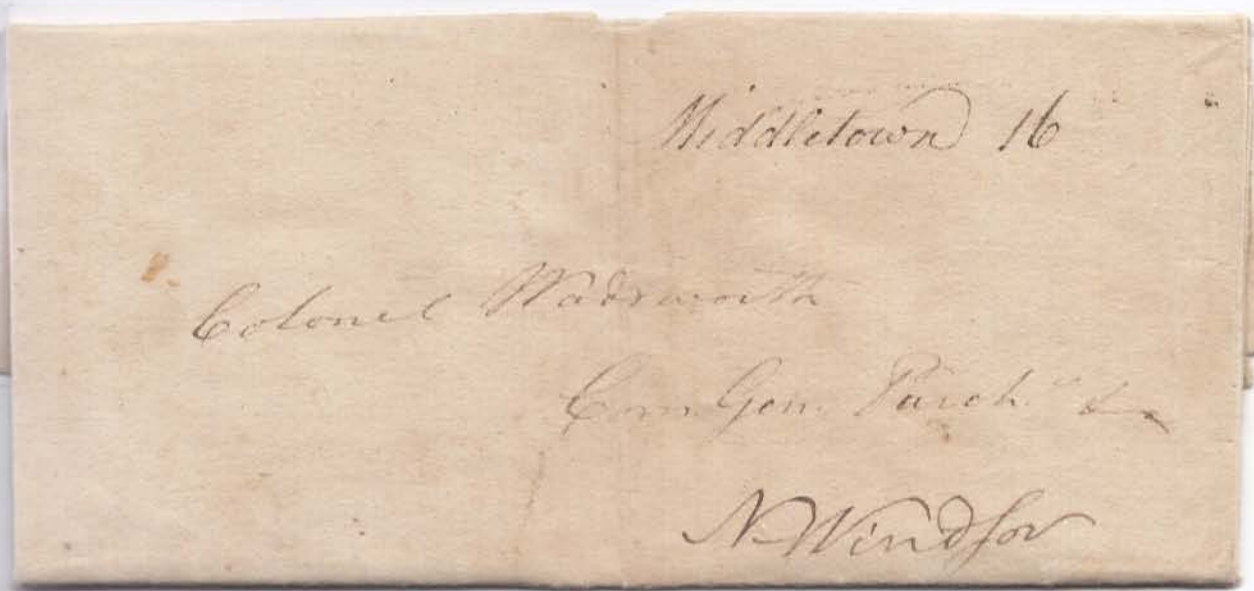 Middletown 16
Colonel Wadsworth
Com. Gen. Purch.s &c
N Windsor